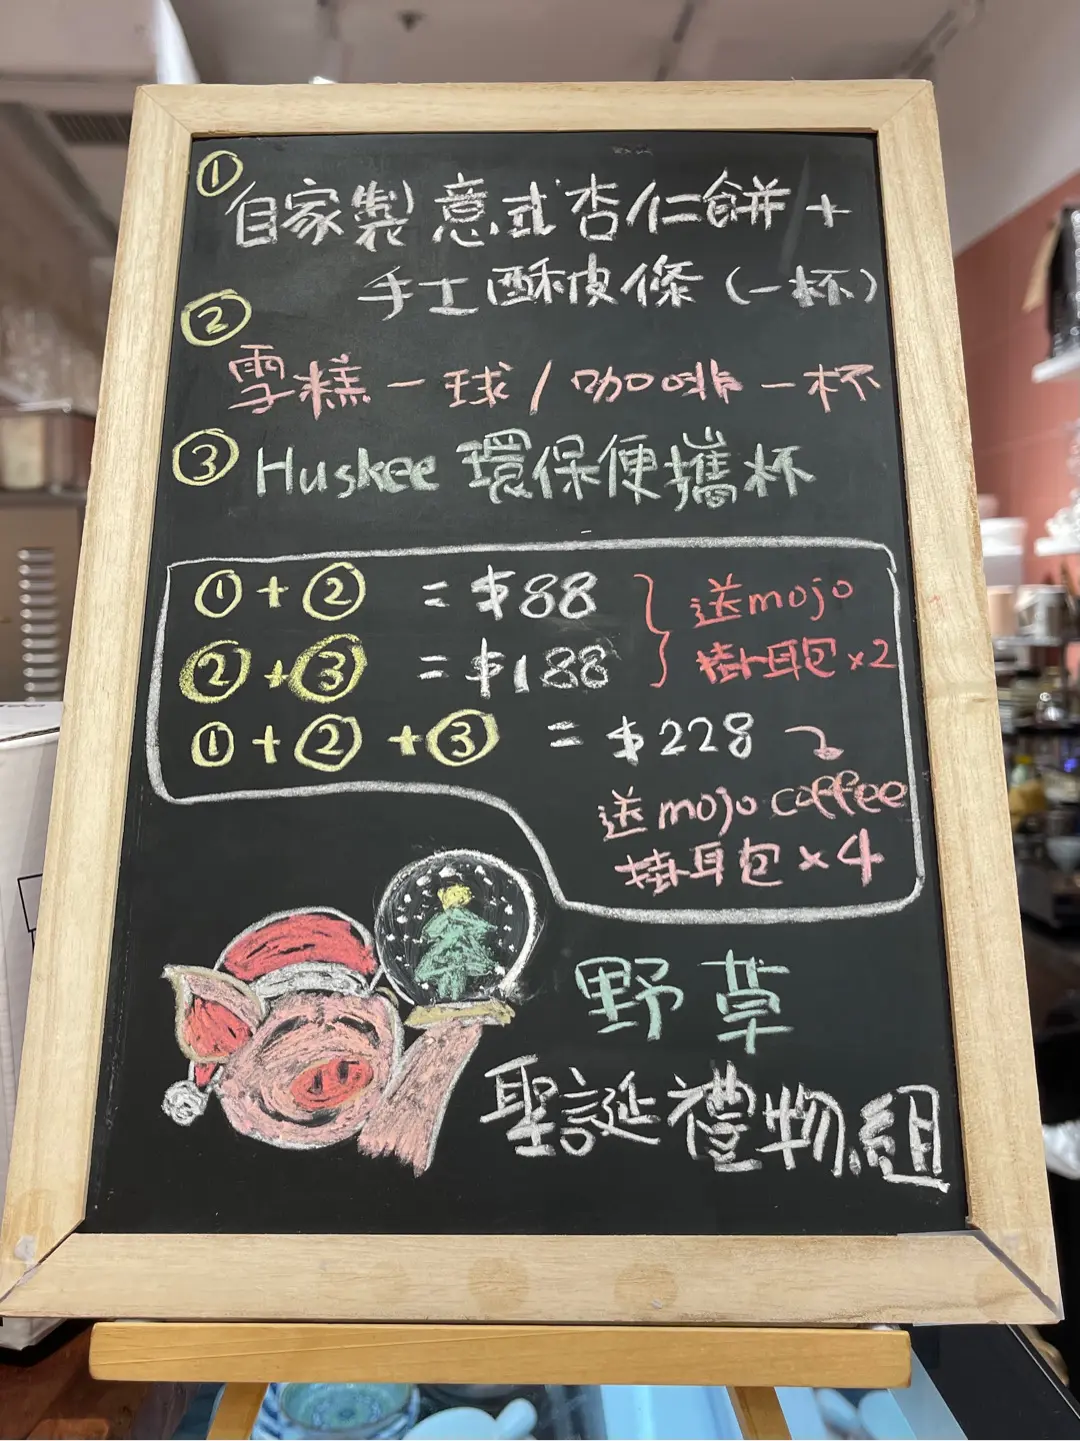 ① 自家製意式杏仁餅 +
手工酥皮條 (一杯)
②
雪糕一球 / 咖啡一杯
③ Huskee 環保便攜杯
① + ② = $88
② + ③ = $188
送mojo
掛耳包 x2
① + ② + ③ = $228
送mojo coffee
掛耳包 x4
野草
聖誕禮物組